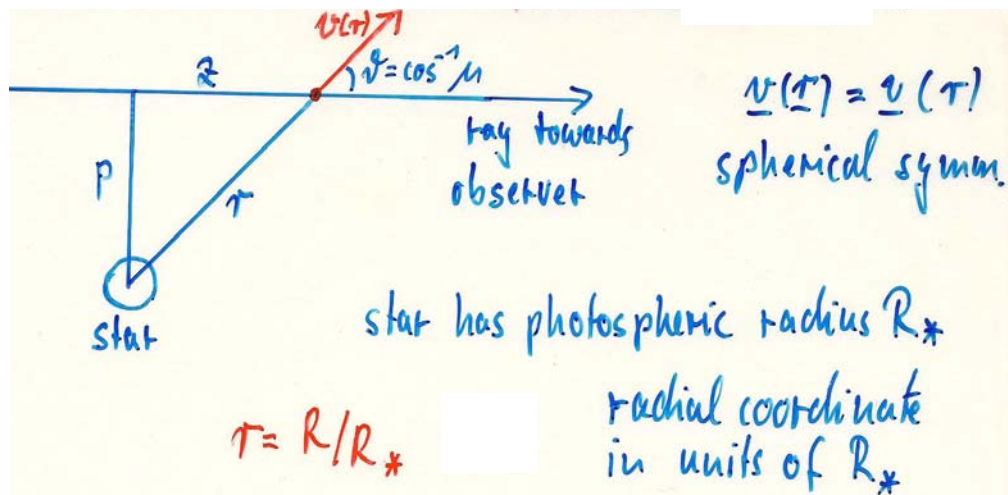 v(r)
z
ϑ=cos⁻¹μ
v(r) = v(r)
ray towards
observer
spherical symm.
p
r
star
star has photospheric radius R*
radial coordinate
in units of R*
r = R/R*